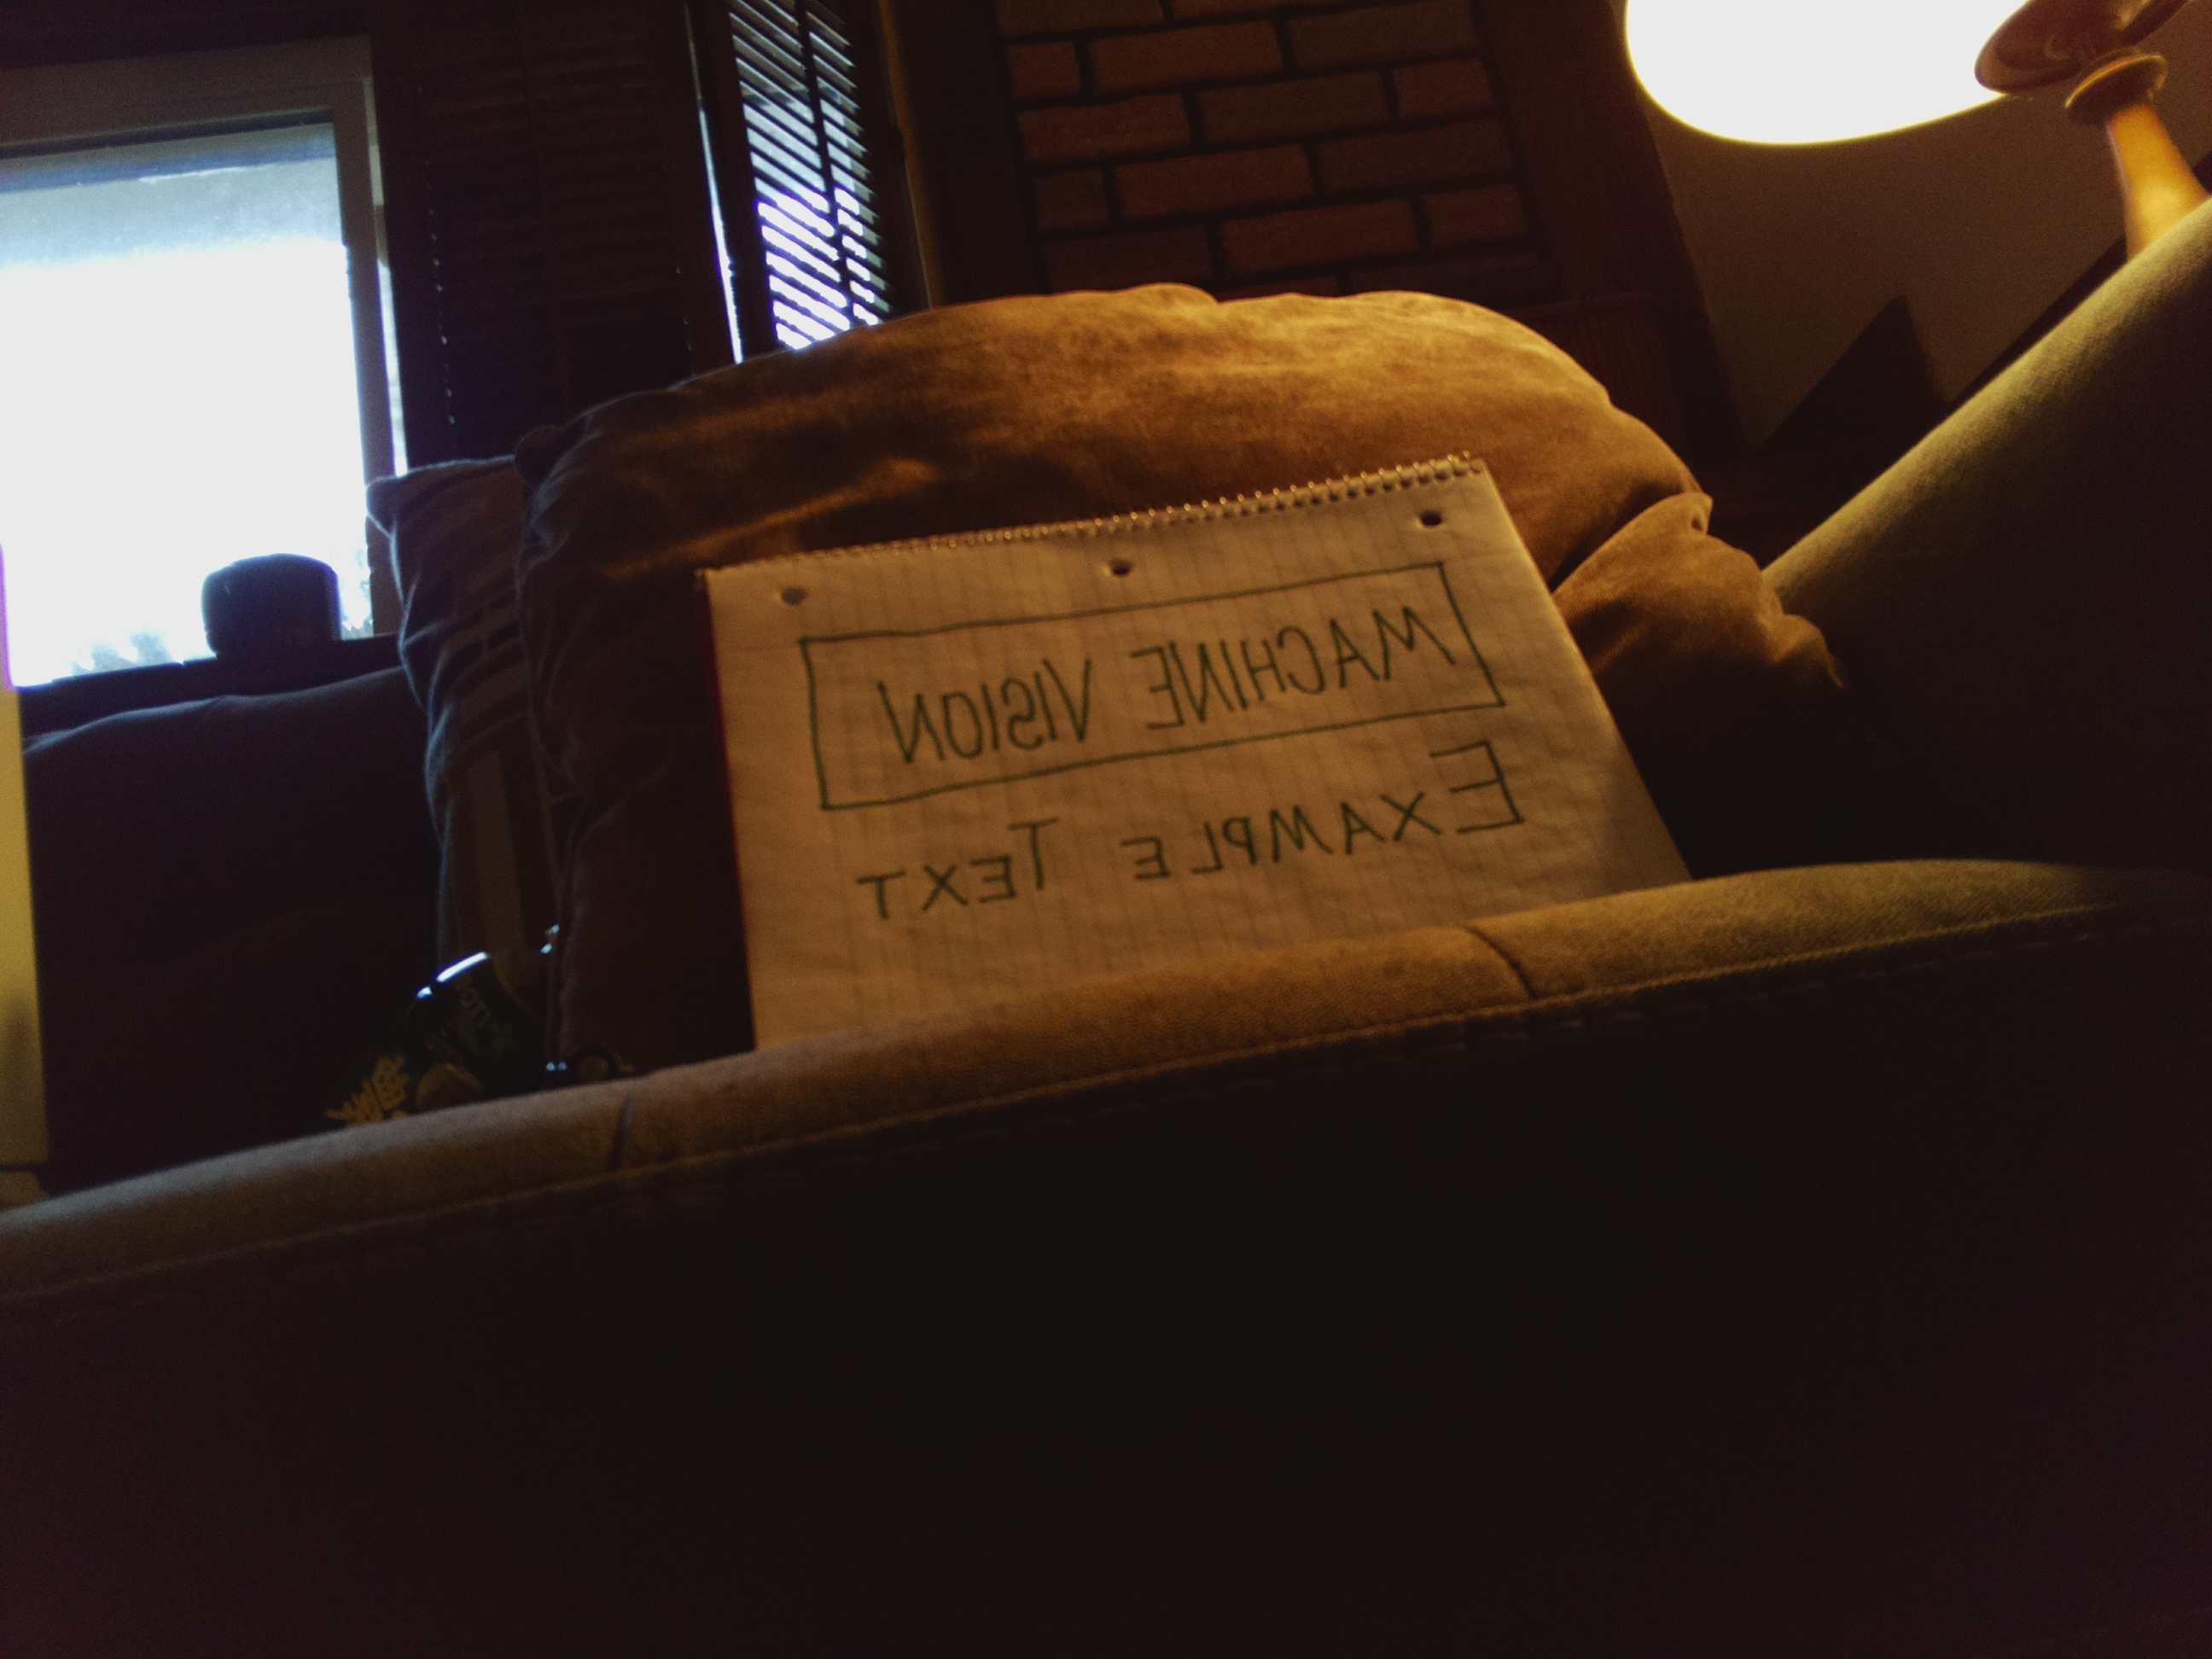 MACHINE VISION
EXAMPLE TEXT